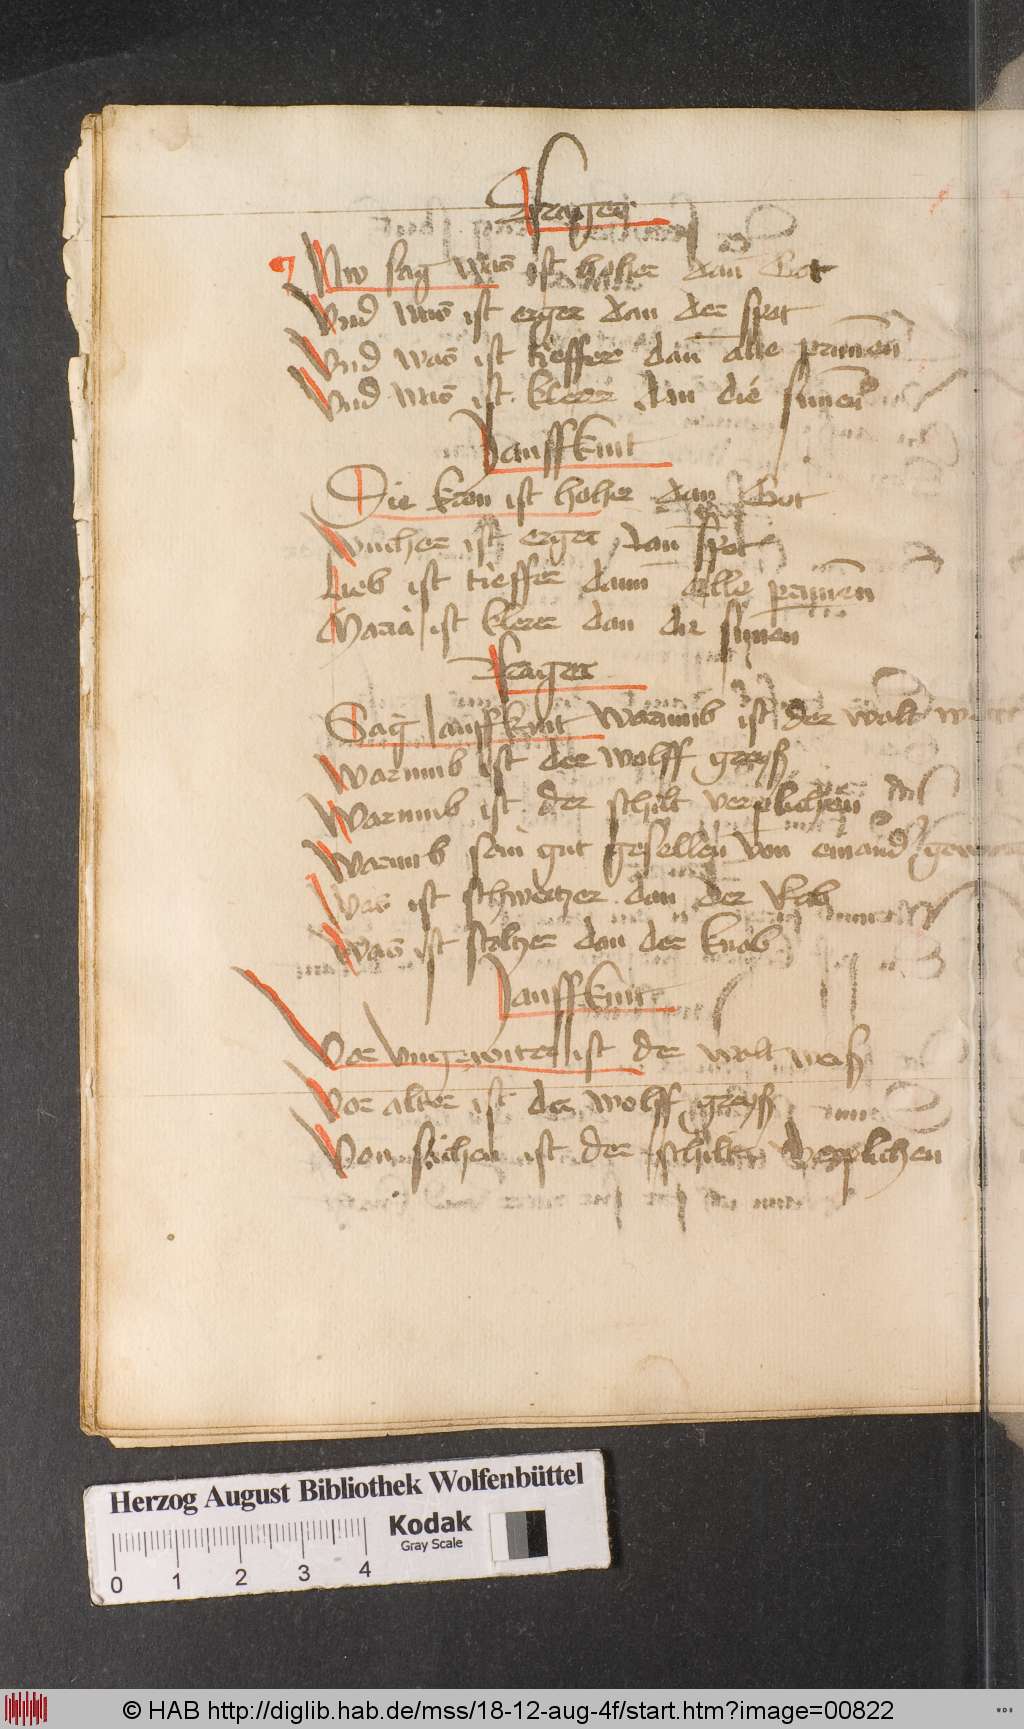 Frager
Nw sag was ist hoher dan̄ Got
Vnd was ist erger dan der spot
Vnd was ist tieffer dan̄ alle prunnē
Vnd was ist klerer dan die sunnē
Lauffkint
Die kron ist hoher dan Got
Wucher ist erger dan spot
Lieb ist tieffer dann alle prunēn
Maria ist klerer dan die sunen
Frager
Sag lauffkint warumb ist der walt
Warumb ist der wolff greyß
Warumb ist der schilt verplichen
Warumb sein gut gesellen von einand
Was ist schwertzer dan der Rab
Was ist stoltzer dan der knab
Lauffkint
Vor vngewiter ist der walt weiß
Vor alter ist der wolff greyß
Von stichen ist der schilt verplichen
Herzog August Bibliothek Wolfenbüttel
Kodak
Gray Scale
0 1 2 3 4
© HAB http://diglib.hab.de/mss/18-12-aug-4f/start.htm?image=00822